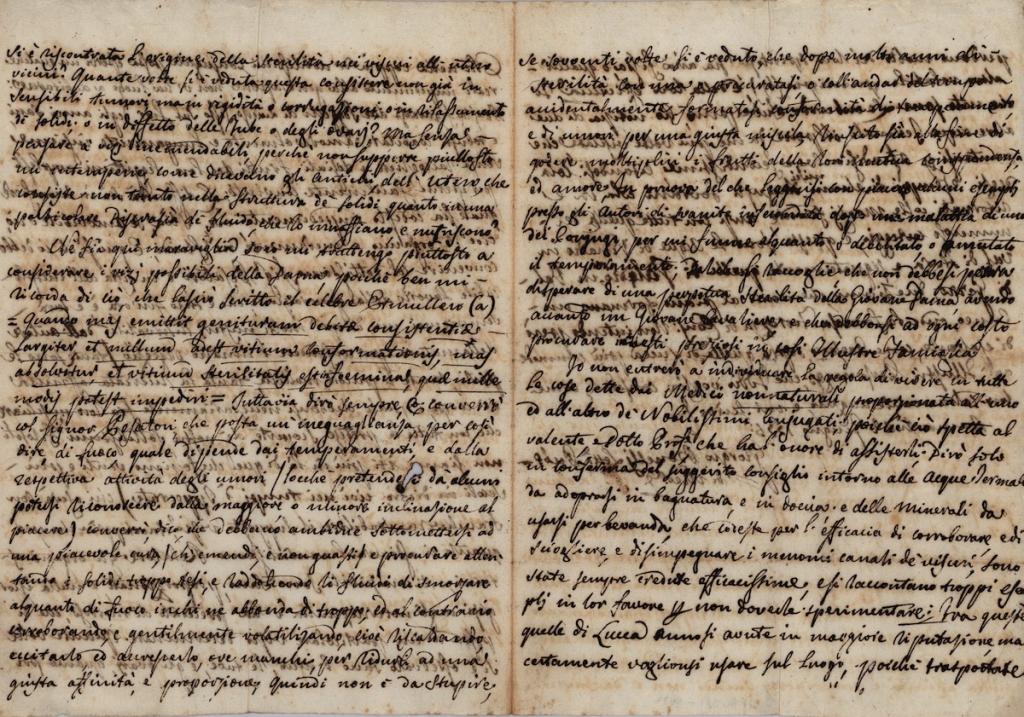 si è riscontrata l'origine della sterilità nei visceri all'utero
vicini? Quante volte si è veduta questa consistere non già in
sensibili tumori ma in rigidità o corrugazioni, o in rilassamento
di solidi, o in difetto delle tube o degli ovarj? Ma senza
pensare a vizj inemendabili, perchè non supporre piuttosto
un' intemperie come dicevano gli Antichi dell' Utero, che
consiste non tanto nella struttura de' solidi quanto in una
particolare Discrasia di fluido che lo innaffiano e nutriscono?
Nè sia qui maraviglia, s'ora mi trattengo piuttosto a
considerare i vizj possibili della Dama poichè ben mi
ricorda di ciò che lasciò scritto il celebre Etmullero (a)
= Quando mas emittit genituram debitæ consistentiæ
largiter, et nullum adest vitium conformationis, mas
absolvitur, et vitium sterilitatis est in foemina, quæ mille
modis potest impediri = Tuttavia dirò sempre, e converrò
col Signor che posta un' ineguaglianza, per così
dire di fuoco quale dipende dai temperamenti, e dalla
respettiva attività degli umori (locchè pretendesi da alcuni
potersi riconoscere dalla maggiore o minore inclinazione al
piacere) converrà dico che debbano ambidue sottomettersi ad
una piacevole cura, ch' emendi, e non guasti e procurare atten-
i solidi troppo tesi, e raddolcendo li fluidi di smorzare
alquanto di fuoco in chi ne abbonda di troppo, ed al contrario
corroborando e gentilmente volatilizzando, cioè riscaldando
eccitarlo, ed accrescerlo, ove manchi, per ridurlo ad una
giusta affinità, e proporzione, Quindi non è da stupire,
se soventi volte si è veduto, che dopo molti anni di
sterilità con una cura procuratasi o coll'andar del tempo ed
accidentalmente formatasi conformità di temperamento
e di umori per una giusta miscela
godere, moltiplici i frutti della
ed amore. In pruova del che leggansi con piacere alcuni esempli
presso gli Autori di svanita infecondità dopo una malattia di uno
dei Conjugi, per cui fu alquanto debilitato o cambiato
il temperamento. Dal che si raccoglie che non debbesi per ora
disperare di una perpetua sterilità della Giovane Dama avendo
accanto un Giovane Cavaliere, e che debbonsi ad ogni costo
procurare innesti preziosi in così Illustre Famiglia
Io non entrerò a individuare la regola di vivere in tutte
le cose dette dai Medici nonnaturali proporzionata all' uno
ed all' altro de' Nobilissimi Conjugati, poichè ciò spetta al
valente e Dotto Profe che ha l' onore di assisterli. Dirò solo
in conferma del suggerito consiglio intorno alle Acque Termali
da adoprarsi in bagnatura, e in doccia, e delle minerali da
usarsi per bevanda, che coteste per l' efficacia di corroborare, e di
sciogliere, e disimpegnare i menomi canali de' visceri, sono
state sempre credute efficacissime, e si raccontano troppi esem-
plj in lor favore p non doverle sperimentare: Tra queste
quelle di Lucca annosi avute in maggiore riputazione ma
certamente vogliansi usare sul luogo, poichè trasportate